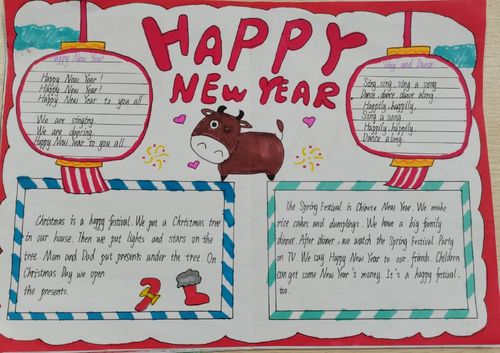 HAPPY
NEW YEAR
Happy New Year
Happy New Year!
Happy New Year!
Happy New Year to you all
We are singing.
We are dancing.
Happy New Year to you all.
Sing and Dance
Sing, sing, sing a song
Dance, dance, dance along.
Happily, happily.
Sing a song.
Happily, happily.
Dance along.
Christmas is a happy festival. We put a Christmas tree
in our house. Then we put lights and stars on the
tree. Mum and Dad put presents under the tree. On
Christmas Day we open
the presents.
The Spring Festival is Chinese New Year. We make
rice cakes and dumplings. We have a big family
dinner. After dinner, we watch the Spring Festival Party
on TV. We say Happy New Year to our friends. Children
can get some New Year's money. It's a happy festival,
too.